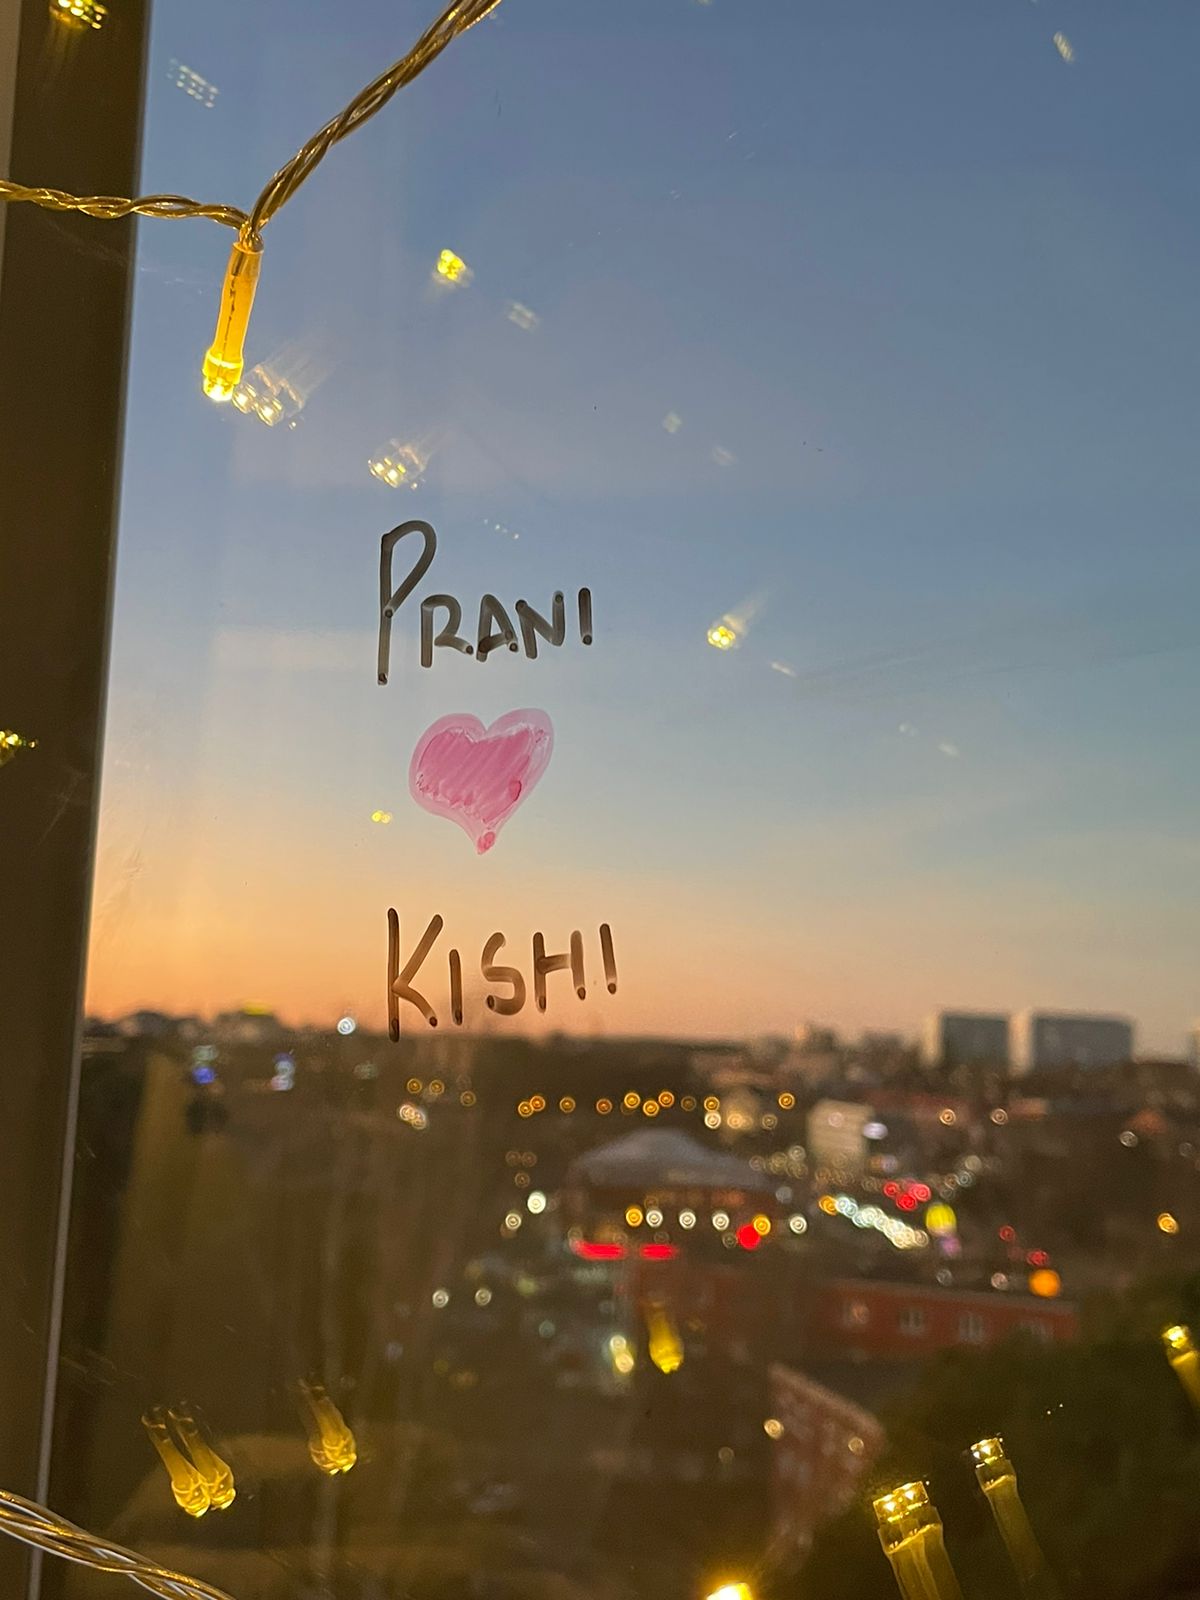 PRANI
KISHI